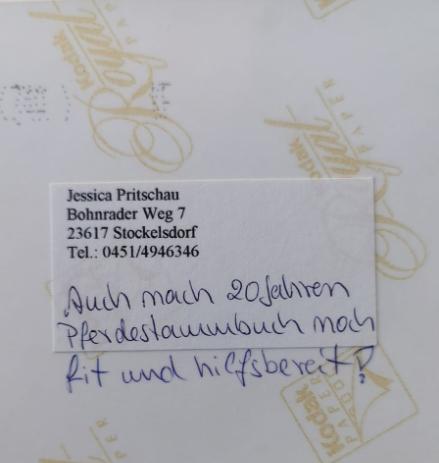 Kodak
Royal
PAPER
Kodak
Royal
PAPER
Jessica Pritschau
Bohnrader Weg 7
23617 Stockelsdorf
Tel.: 0451/4946346
Auch nach 20 Jahren
Pferdestammbuch noch
fit und hilfsbereit
Kodak
PAPER
PAPER